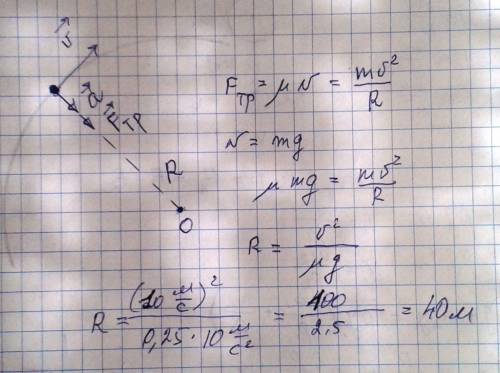 v⃗
a⃗
F⃗тр
R
O
Fтр = μN = mv²/R
N = mg
μmg = mv²/R
R = v²/μg
R = (10 м/с)²/0,25·10 м/с² = 100/2.5 = 40м